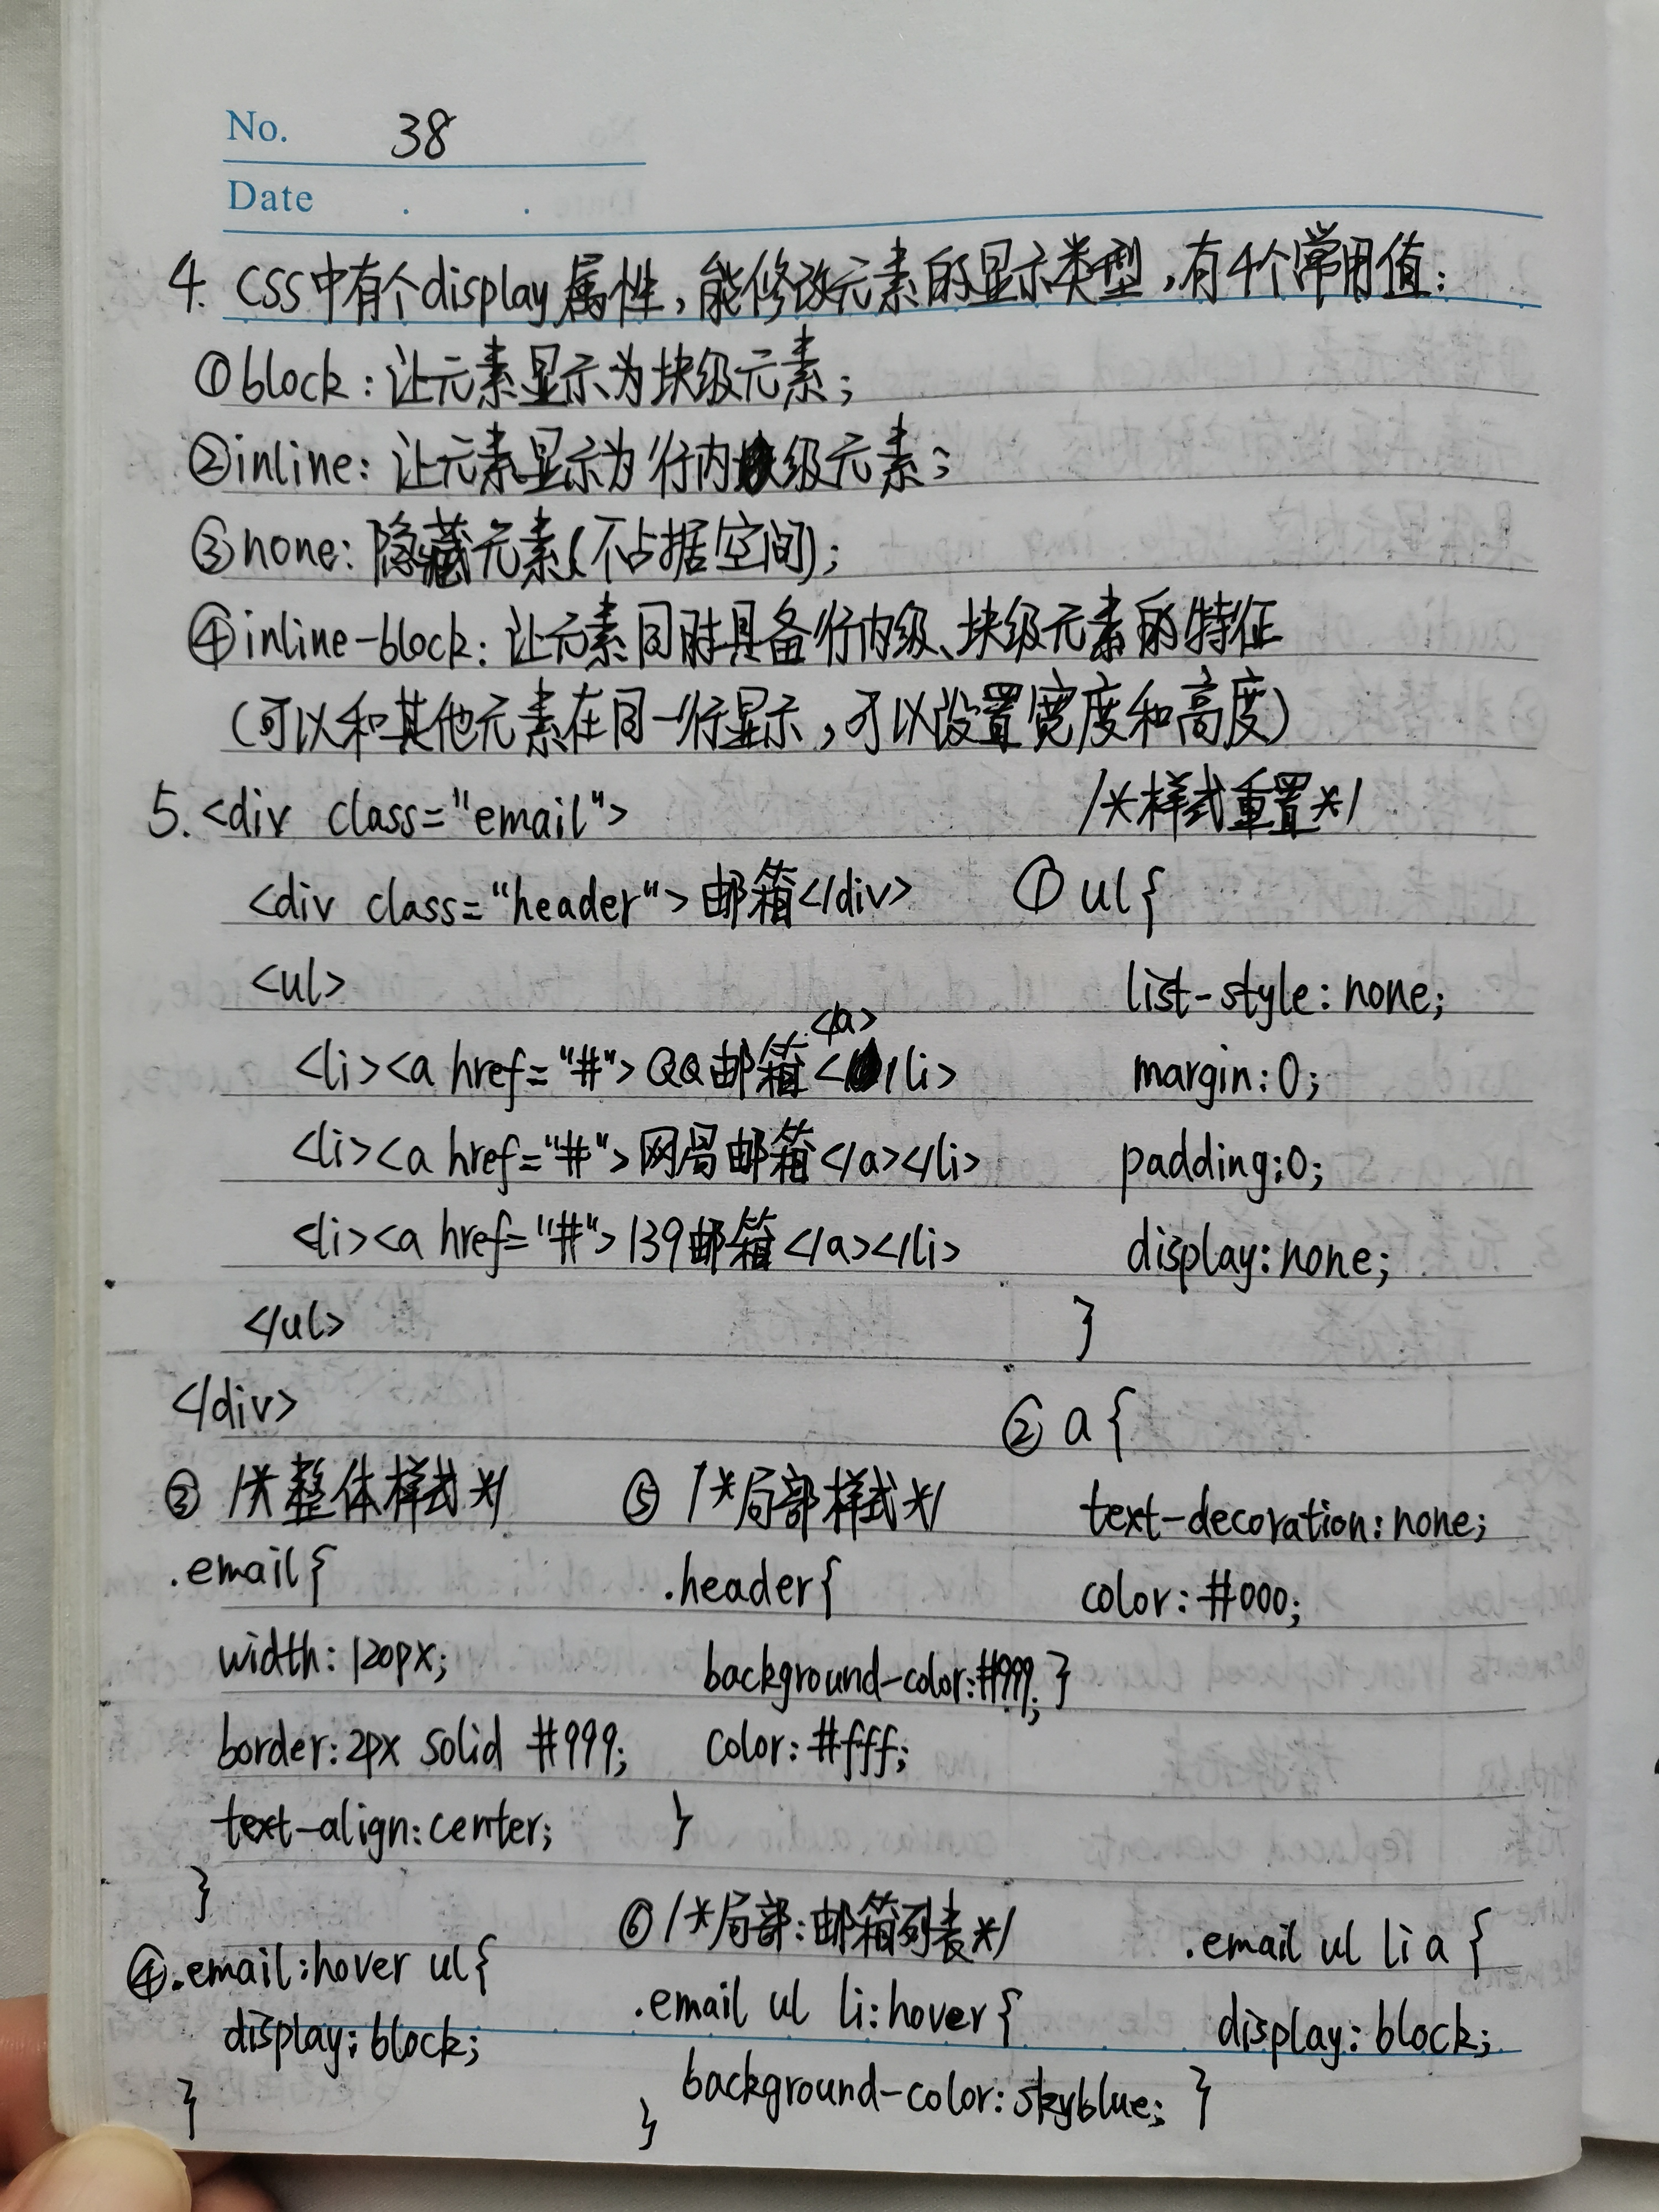 No. 38
Date . .
4. CSS中有个display属性,能修改元素的显示类型,有4个常用值:
①block:让元素显示为块级元素;
②inline:让元素显示为行内级元素;
③none:隐藏元素(不占据空间);
④inline-block:让元素同时具备行内级、块级元素的特征
(可以和其他元素在同一行显示,可以设置宽度和高度)
5.<div class="email">
<div class="header">邮箱</div>
<ul>
<li><a href="#">QQ邮箱</a></li>
<li><a href="#">网易邮箱</a></li>
<li><a href="#">139邮箱</a></li>
</ul>
</div>
/*样式重置*/
① ul{
list-style:none;
margin:0;
padding:0;
display:none;
}
② a{
text-decoration:none;
color:#000;
}
③ /*整体样式*/
.email{
width:120px;
border:2px solid #999;
text-align:center;
}
④.email:hover ul{
display:block;
}
⑤ /*局部样式*/
.header{
background-color:#999;
color:#fff;
}
⑥/*局部:邮箱列表*/
.email ul li:hover{
background-color:skyblue;
}
.email ul li a{
display:block;
}